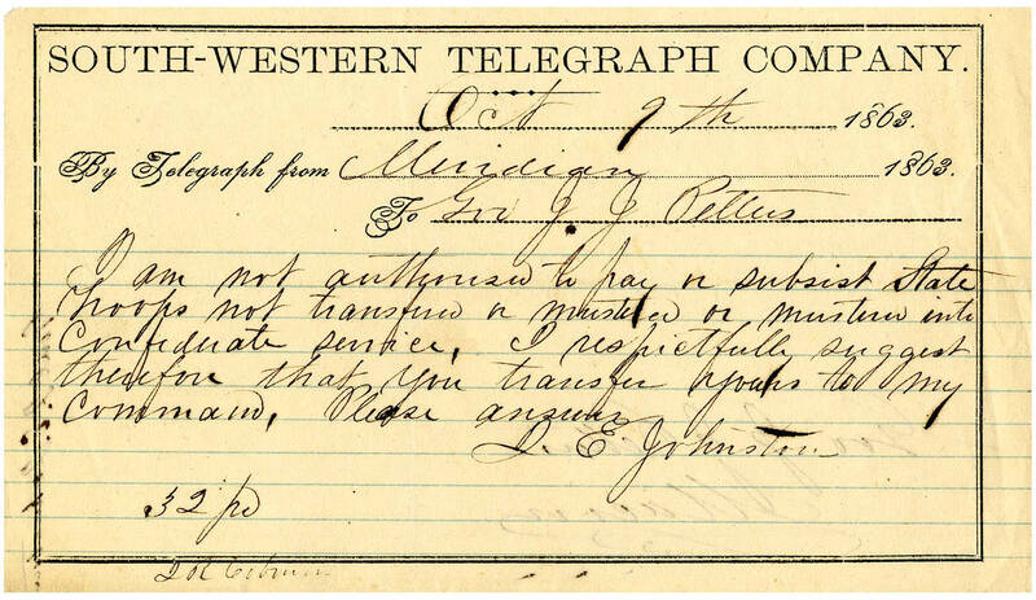 SOUTH-WESTERN TELEGRAPH COMPANY.
Oct 9th 1863.
By Telegraph from Meridian 1863.
To Gov J. J Pettus
I am not authorised to pay or subsist State
troops not transfered or mustered or mustered into
Confederate service, I respectfully suggest
therefore that you transfer yours to my
Command, Please answer
J E Johnston
32 pd